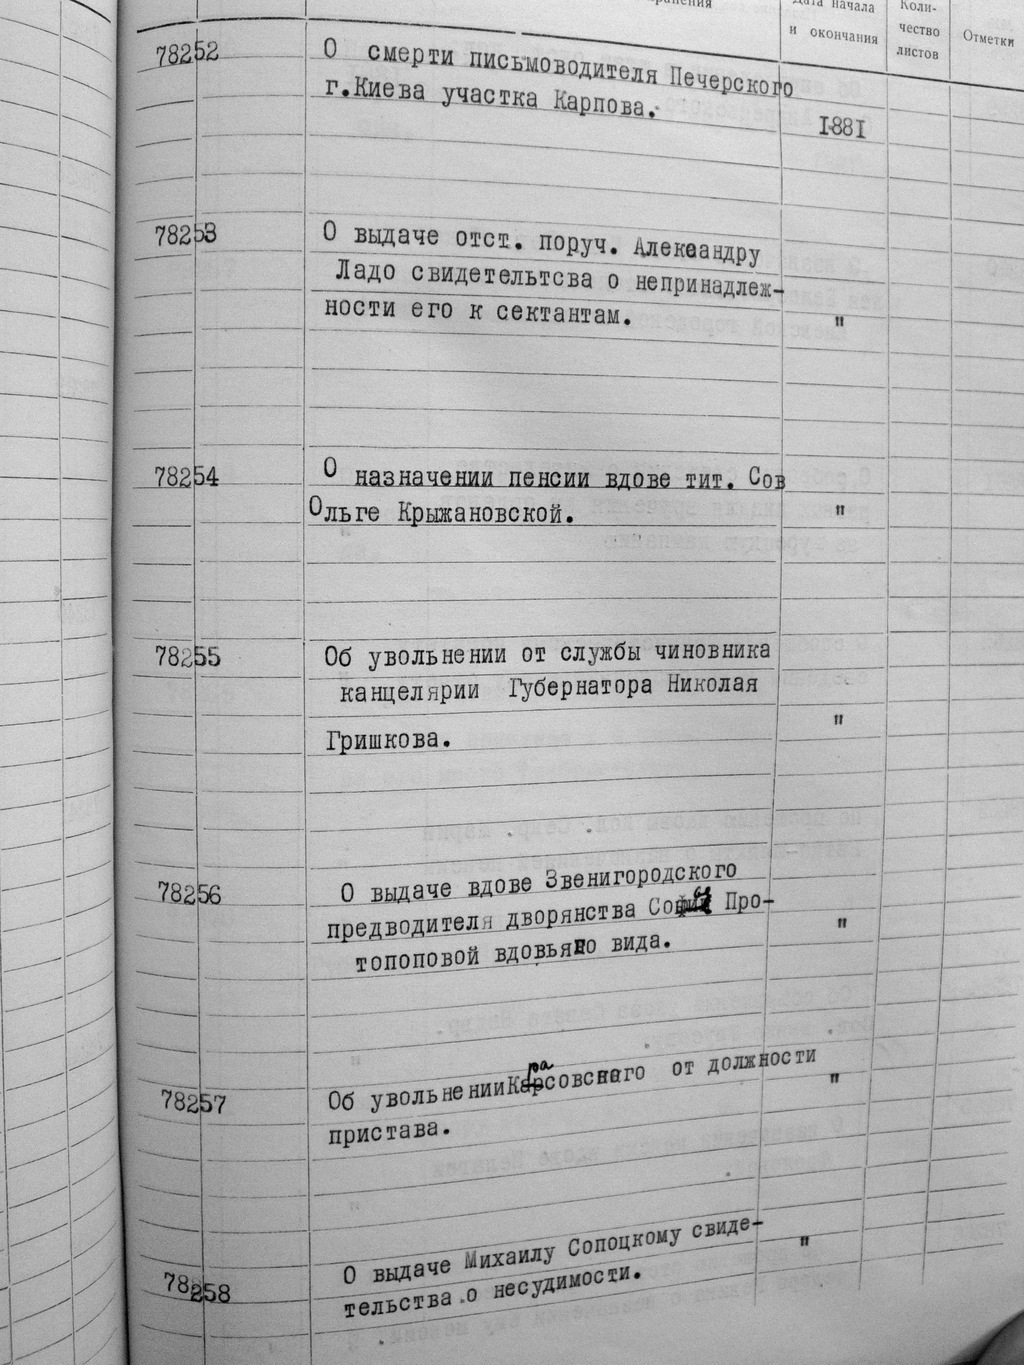 Дата начала
и окончания
Коли-
чество
листов
Отметки
78252
О смерти письмоводителя Печерского
г.Киева участка Карпова.
I881
78253
О выдаче отст. поруч. Александру
Ладо свидетельтсва о непринадлеж-
ности его к сектантам.
"
78254
О назначении пенсии вдове тит. Сов
Ольге Крыжановской.
"
78255
Об увольнении от службы чиновника
канцелярии Губернатора Николая
Гришкова.
"
78256
О выдаче вдове Звенигородского
предводителя дворянства Софии Про-
топоповой вдовьяго вида.
"
78257
Об увольнении Карасовского от должности
пристава.
"
78258
О выдаче Михаилу Сопоцкому свиде-
тельства о несудимости.
"